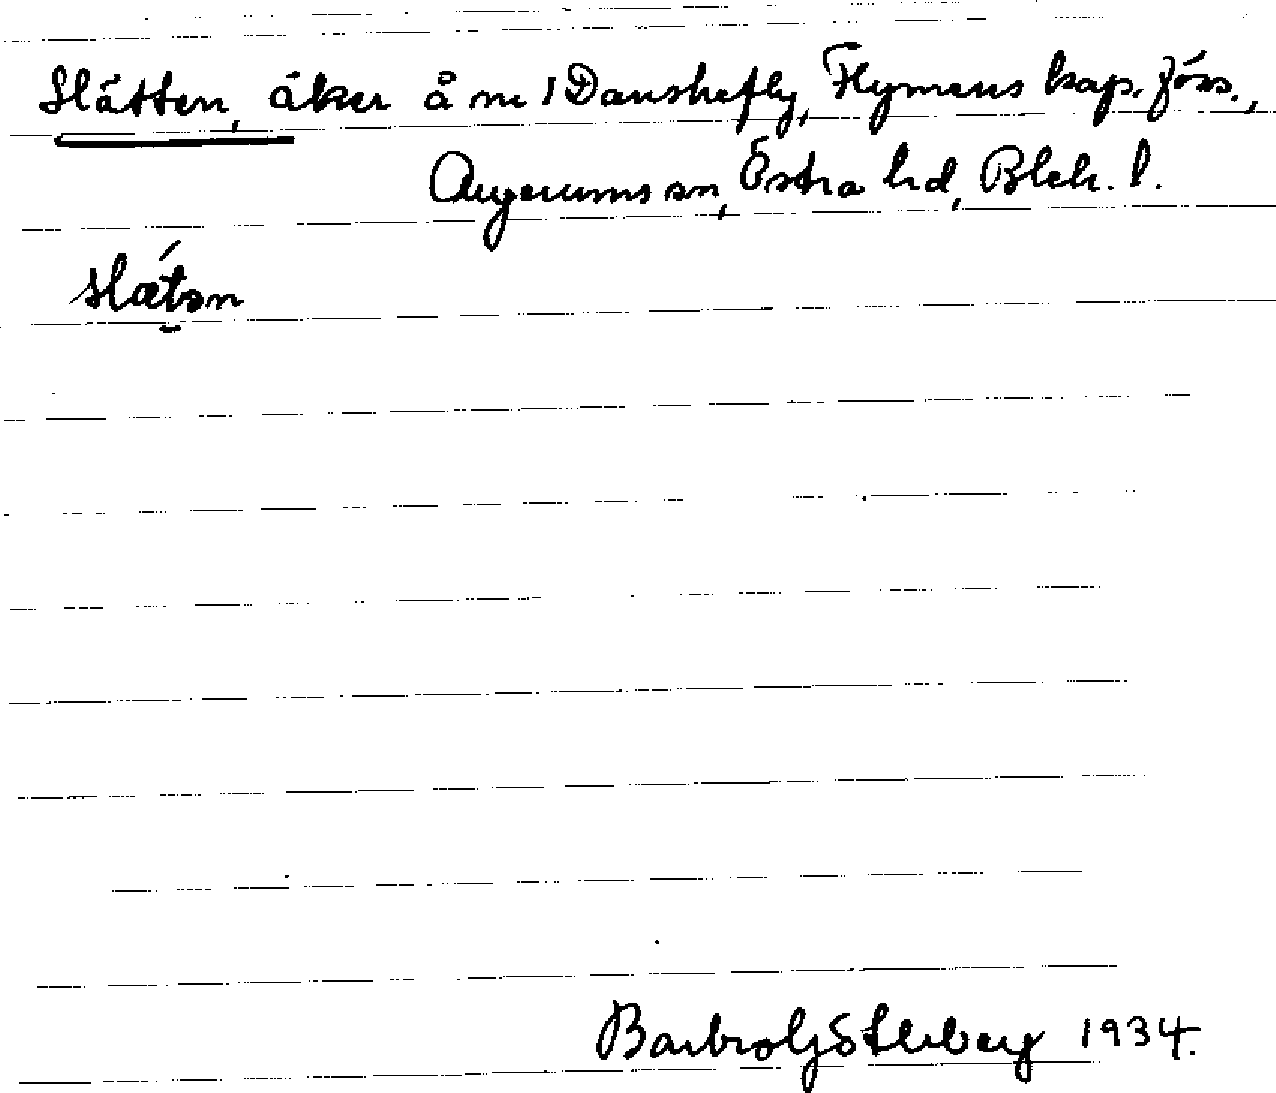 Slåtten, åker å nr 1 Danskefly, Flymens kap. förs.,
Augerums sn, Östra hd, Blek. l.
slåtən
Barbro Götleberg 1934.